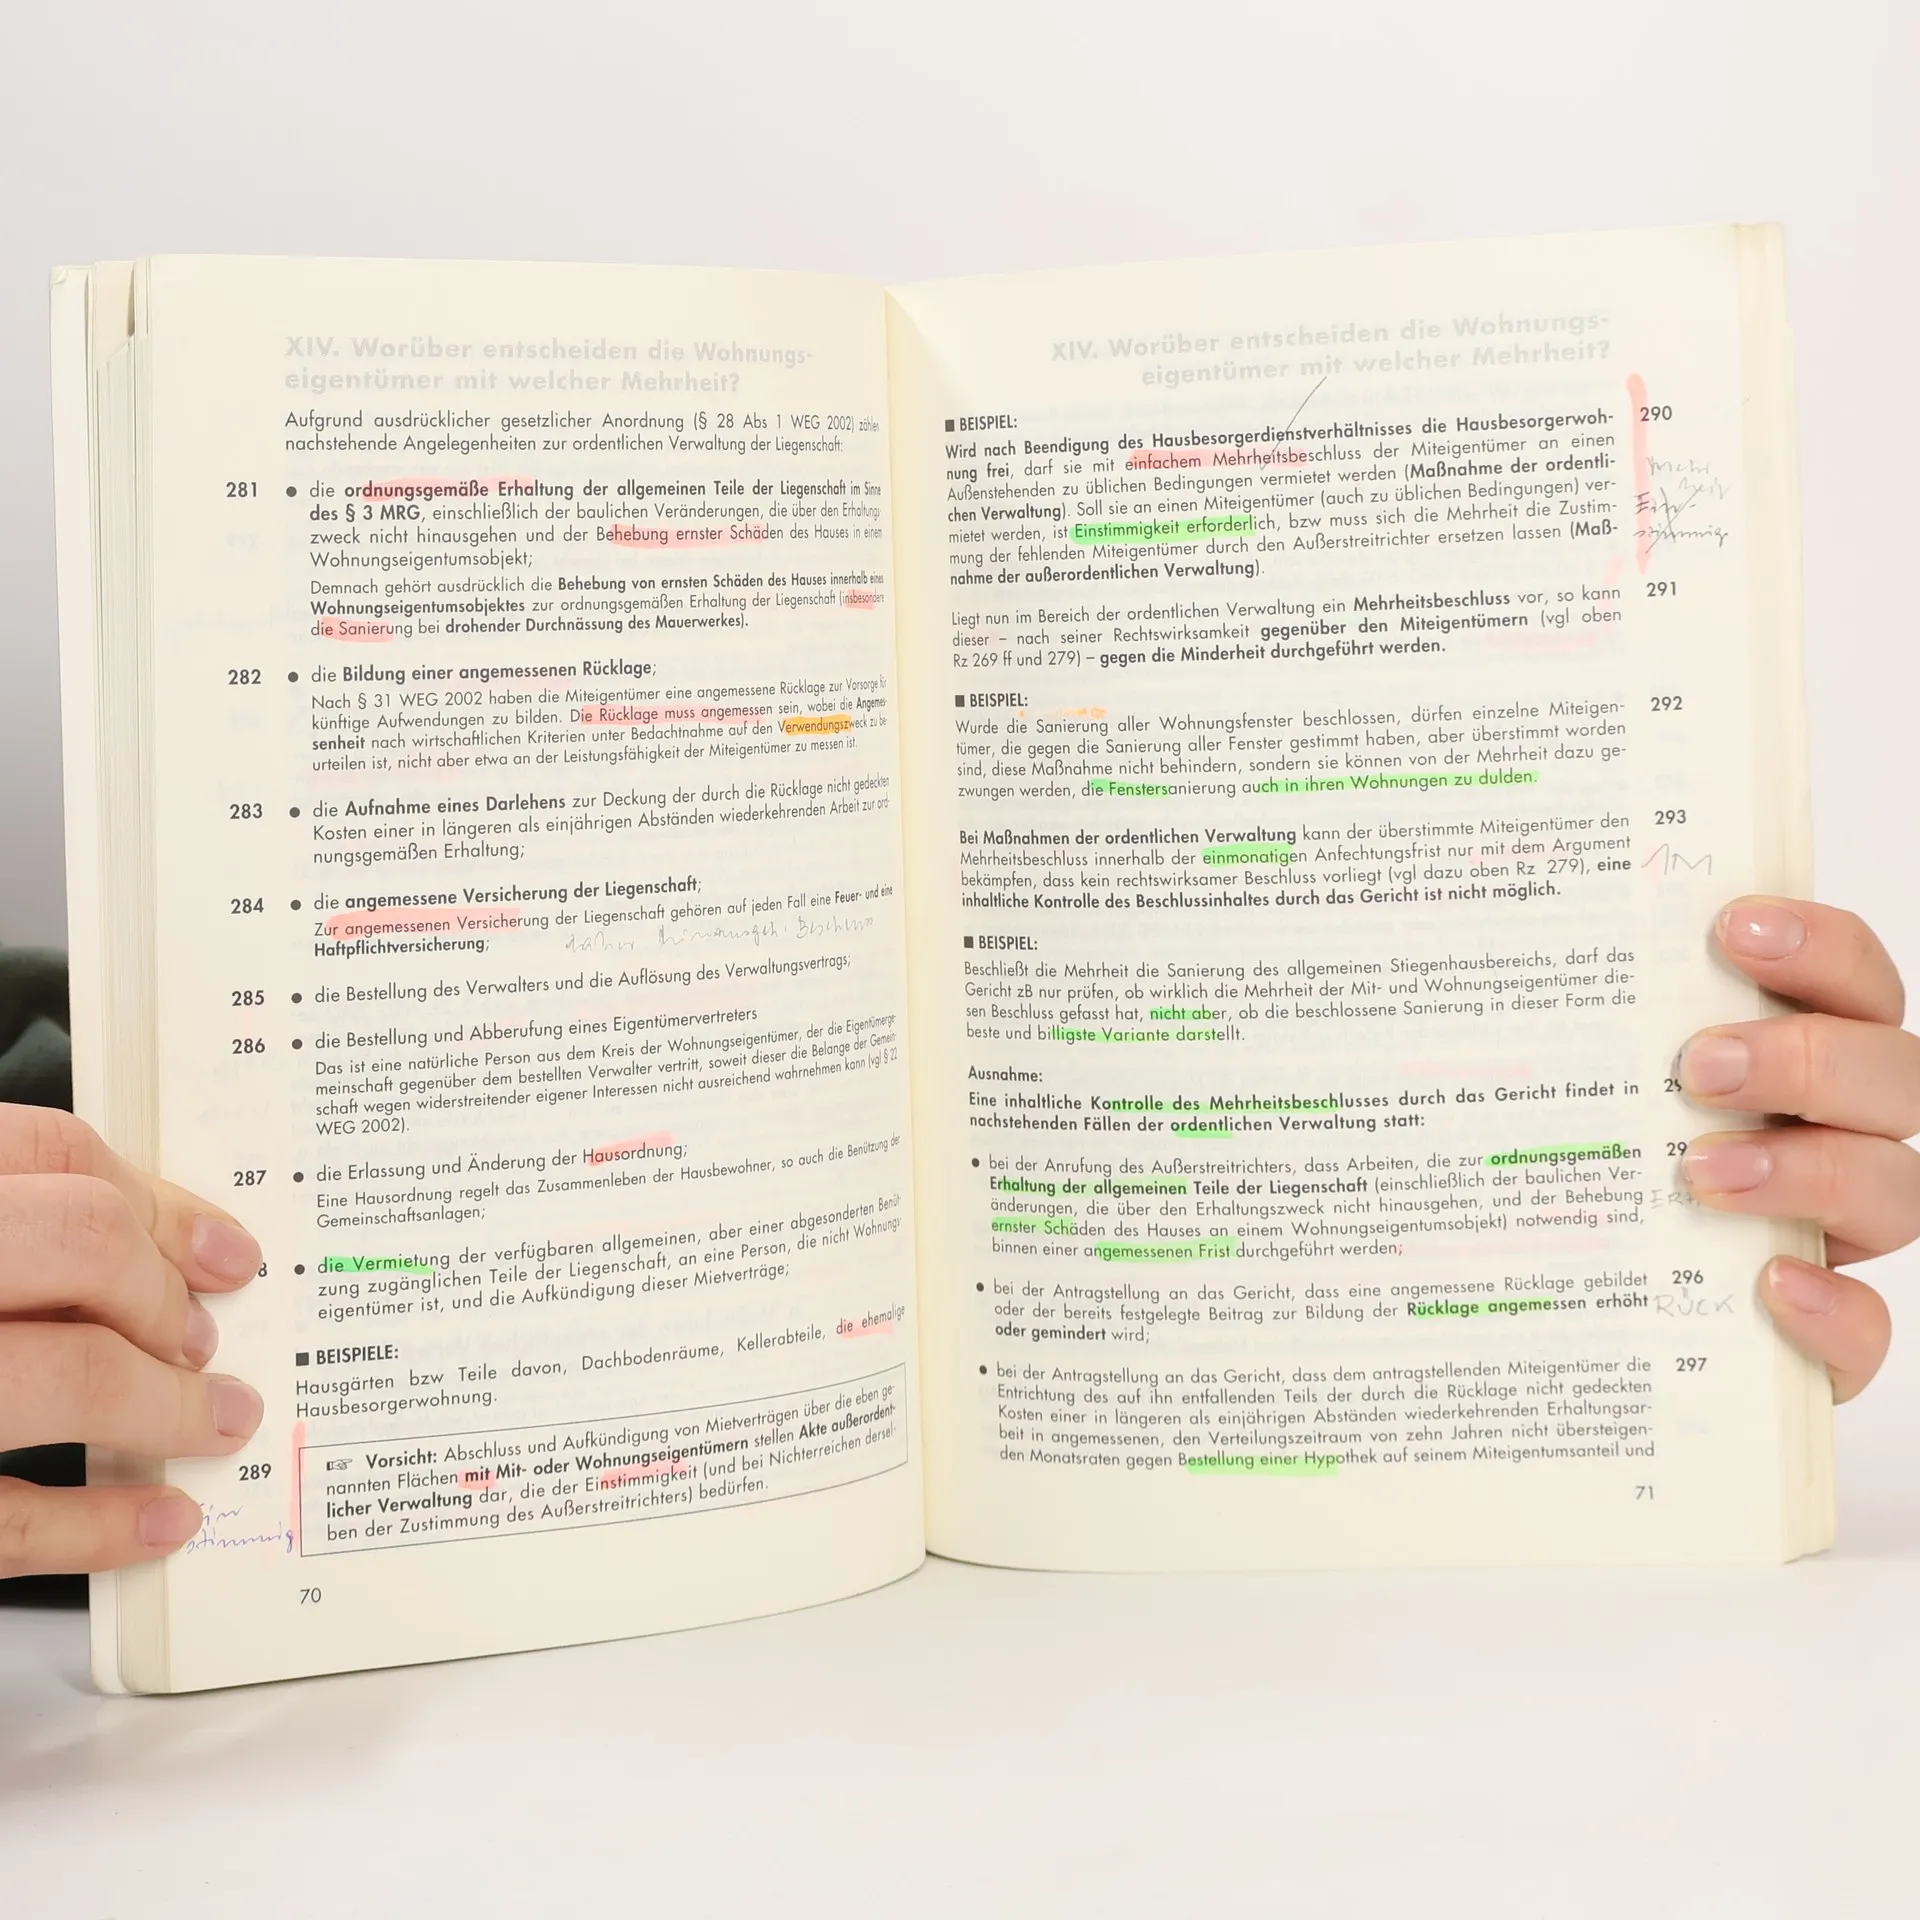 XIV. Worüber entscheiden die Wohnungs-
eigentümer mit welcher Mehrheit?
Aufgrund ausdrücklicher gesetzlicher Anordnung (§ 28 Abs 1 WEG 2002) zählen
nachstehende Angelegenheiten zur ordentlichen Verwaltung der Liegenschaft:
281 ● die ordnungsgemäße Erhaltung der allgemeinen Teile der Liegenschaft im Sinne
des § 3 MRG, einschließlich der baulichen Veränderungen, die über den Erhaltungs-
zweck nicht hinausgehen und der Behebung ernster Schäden des Hauses in einem
Wohnungseigentumsobjekt;
Demnach gehört ausdrücklich die Behebung von ernsten Schäden des Hauses innerhalb eines
Wohnungseigentumsobjektes zur ordnungsgemäßen Erhaltung der Liegenschaft (insbesondere
die Sanierung bei drohender Durchnässung des Mauerwerkes).
282 ● die Bildung einer angemessenen Rücklage;
Nach § 31 WEG 2002 haben die Miteigentümer eine angemessene Rücklage zur Vorsorge für
künftige Aufwendungen zu bilden. Die Rücklage muss angemessen sein, wobei die Angemes-
senheit nach wirtschaftlichen Kriterien unter Bedachtnahme auf den Verwendungszweck zu be-
urteilen ist, nicht aber etwa an der Leistungsfähigkeit der Miteigentümer zu messen ist.
283 ● die Aufnahme eines Darlehens zur Deckung der durch die Rücklage nicht gedeckten
Kosten einer in längeren als einjährigen Abständen wiederkehrenden Arbeit zur ord-
nungsgemäßen Erhaltung;
284 ● die angemessene Versicherung der Liegenschaft;
Zur angemessenen Versicherung der Liegenschaft gehören auf jeden Fall eine Feuer- und eine
Haftpflichtversicherung;
285 ● die Bestellung des Verwalters und die Auflösung des Verwaltungsvertrags;
286 ● die Bestellung und Abberufung eines Eigentümervertreters
Das ist eine natürliche Person aus dem Kreis der Wohnungseigentümer, der die Eigentümerge-
meinschaft gegenüber dem bestellten Verwalter vertritt, soweit dieser die Belange der Gemein-
schaft wegen widerstreitender eigener Interessen nicht ausreichend wahrnehmen kann (vgl § 22
WEG 2002).
287 ● die Erlassung und Änderung der Hausordnung;
Eine Hausordnung regelt das Zusammenleben der Hausbewohner, so auch die Benützung der
Gemeinschaftsanlagen;
8 ● die Vermietung der verfügbaren allgemeinen, aber einer abgesonderten Benüt-
zung zugänglichen Teile der Liegenschaft, an eine Person, die nicht Wohnungs-
eigentümer ist, und die Aufkündigung dieser Mietverträge;
■ BEISPIELE:
Hausgärten bzw Teile davon, Dachbodenräume, Kellerabteile, die ehemalige
Hausbesorgerwohnung.
289 ☞ Vorsicht: Abschluss und Aufkündigung von Mietverträgen über die eben ge-
nannten Flächen mit Mit- oder Wohnungseigentümern stellen Akte außerordent-
licher Verwaltung dar, die der Einstimmigkeit (und bei Nichterreichen dersel-
ben der Zustimmung des Außerstreitrichters) bedürfen.
Ein
stimmig
70
XIV. Worüber entscheiden die Wohnungs-
eigentümer mit welcher Mehrheit?
■ BEISPIEL: 290
Wird nach Beendigung des Hausbesorgerdienstverhältnisses die Hausbesorgerwoh-
nung frei, darf sie mit einfachem Mehrheitsbeschluss der Miteigentümer an einen
Außenstehenden zu üblichen Bedingungen vermietet werden (Maßnahme der ordentli-
chen Verwaltung). Soll sie an einen Miteigentümer (auch zu üblichen Bedingungen) ver-
mietet werden, ist Einstimmigkeit erforderlich, bzw muss sich die Mehrheit die Zustim-
mung der fehlenden Miteigentümer durch den Außerstreitrichter ersetzen lassen (Maß-
nahme der außerordentlichen Verwaltung).
Mehr
heit
Ein-
stimmig
Liegt nun im Bereich der ordentlichen Verwaltung ein Mehrheitsbeschluss vor, so kann 291
dieser – nach seiner Rechtswirksamkeit gegenüber den Miteigentümern (vgl oben
Rz 269 ff und 279) – gegen die Minderheit durchgeführt werden.
■ BEISPIEL:
Wurde die Sanierung aller Wohnungsfenster beschlossen, dürfen einzelne Miteigen- 292
tümer, die gegen die Sanierung aller Fenster gestimmt haben, aber überstimmt worden
sind, diese Maßnahme nicht behindern, sondern sie können von der Mehrheit dazu ge-
zwungen werden, die Fenstersanierung auch in ihren Wohnungen zu dulden.
Bei Maßnahmen der ordentlichen Verwaltung kann der überstimmte Miteigentümer den 293
Mehrheitsbeschluss innerhalb der einmonatigen Anfechtungsfrist nur mit dem Argument
bekämpfen, dass kein rechtswirksamer Beschluss vorliegt (vgl dazu oben Rz 279), eine 1M
inhaltliche Kontrolle des Beschlussinhaltes durch das Gericht ist nicht möglich.
■ BEISPIEL:
Beschließt die Mehrheit die Sanierung des allgemeinen Stiegenhausbereichs, darf das
Gericht zB nur prüfen, ob wirklich die Mehrheit der Mit- und Wohnungseigentümer die-
sen Beschluss gefasst hat, nicht aber, ob die beschlossene Sanierung in dieser Form die
beste und billigste Variante darstellt.
Ausnahme:
Eine inhaltliche Kontrolle des Mehrheitsbeschlusses durch das Gericht findet in 29
nachstehenden Fällen der ordentlichen Verwaltung statt:
● bei der Anrufung des Außerstreitrichters, dass Arbeiten, die zur ordnungsgemäßen 29
Erhaltung der allgemeinen Teile der Liegenschaft (einschließlich der baulichen Ver-
änderungen, die über den Erhaltungszweck nicht hinausgehen, und der Behebung
ernster Schäden des Hauses an einem Wohnungseigentumsobjekt) notwendig sind,
binnen einer angemessenen Frist durchgeführt werden;
● bei der Antragstellung an das Gericht, dass eine angemessene Rücklage gebildet 296
oder der bereits festgelegte Beitrag zur Bildung der Rücklage angemessen erhöht RÜCK
oder gemindert wird;
● bei der Antragstellung an das Gericht, dass dem antragstellenden Miteigentümer die 297
Entrichtung des auf ihn entfallenden Teils der durch die Rücklage nicht gedeckten
Kosten einer in längeren als einjährigen Abständen wiederkehrenden Erhaltungsar-
beit in angemessenen, den Verteilungszeitraum von zehn Jahren nicht übersteigen-
den Monatsraten gegen Bestellung einer Hypothek auf seinem Miteigentumsanteil und
71